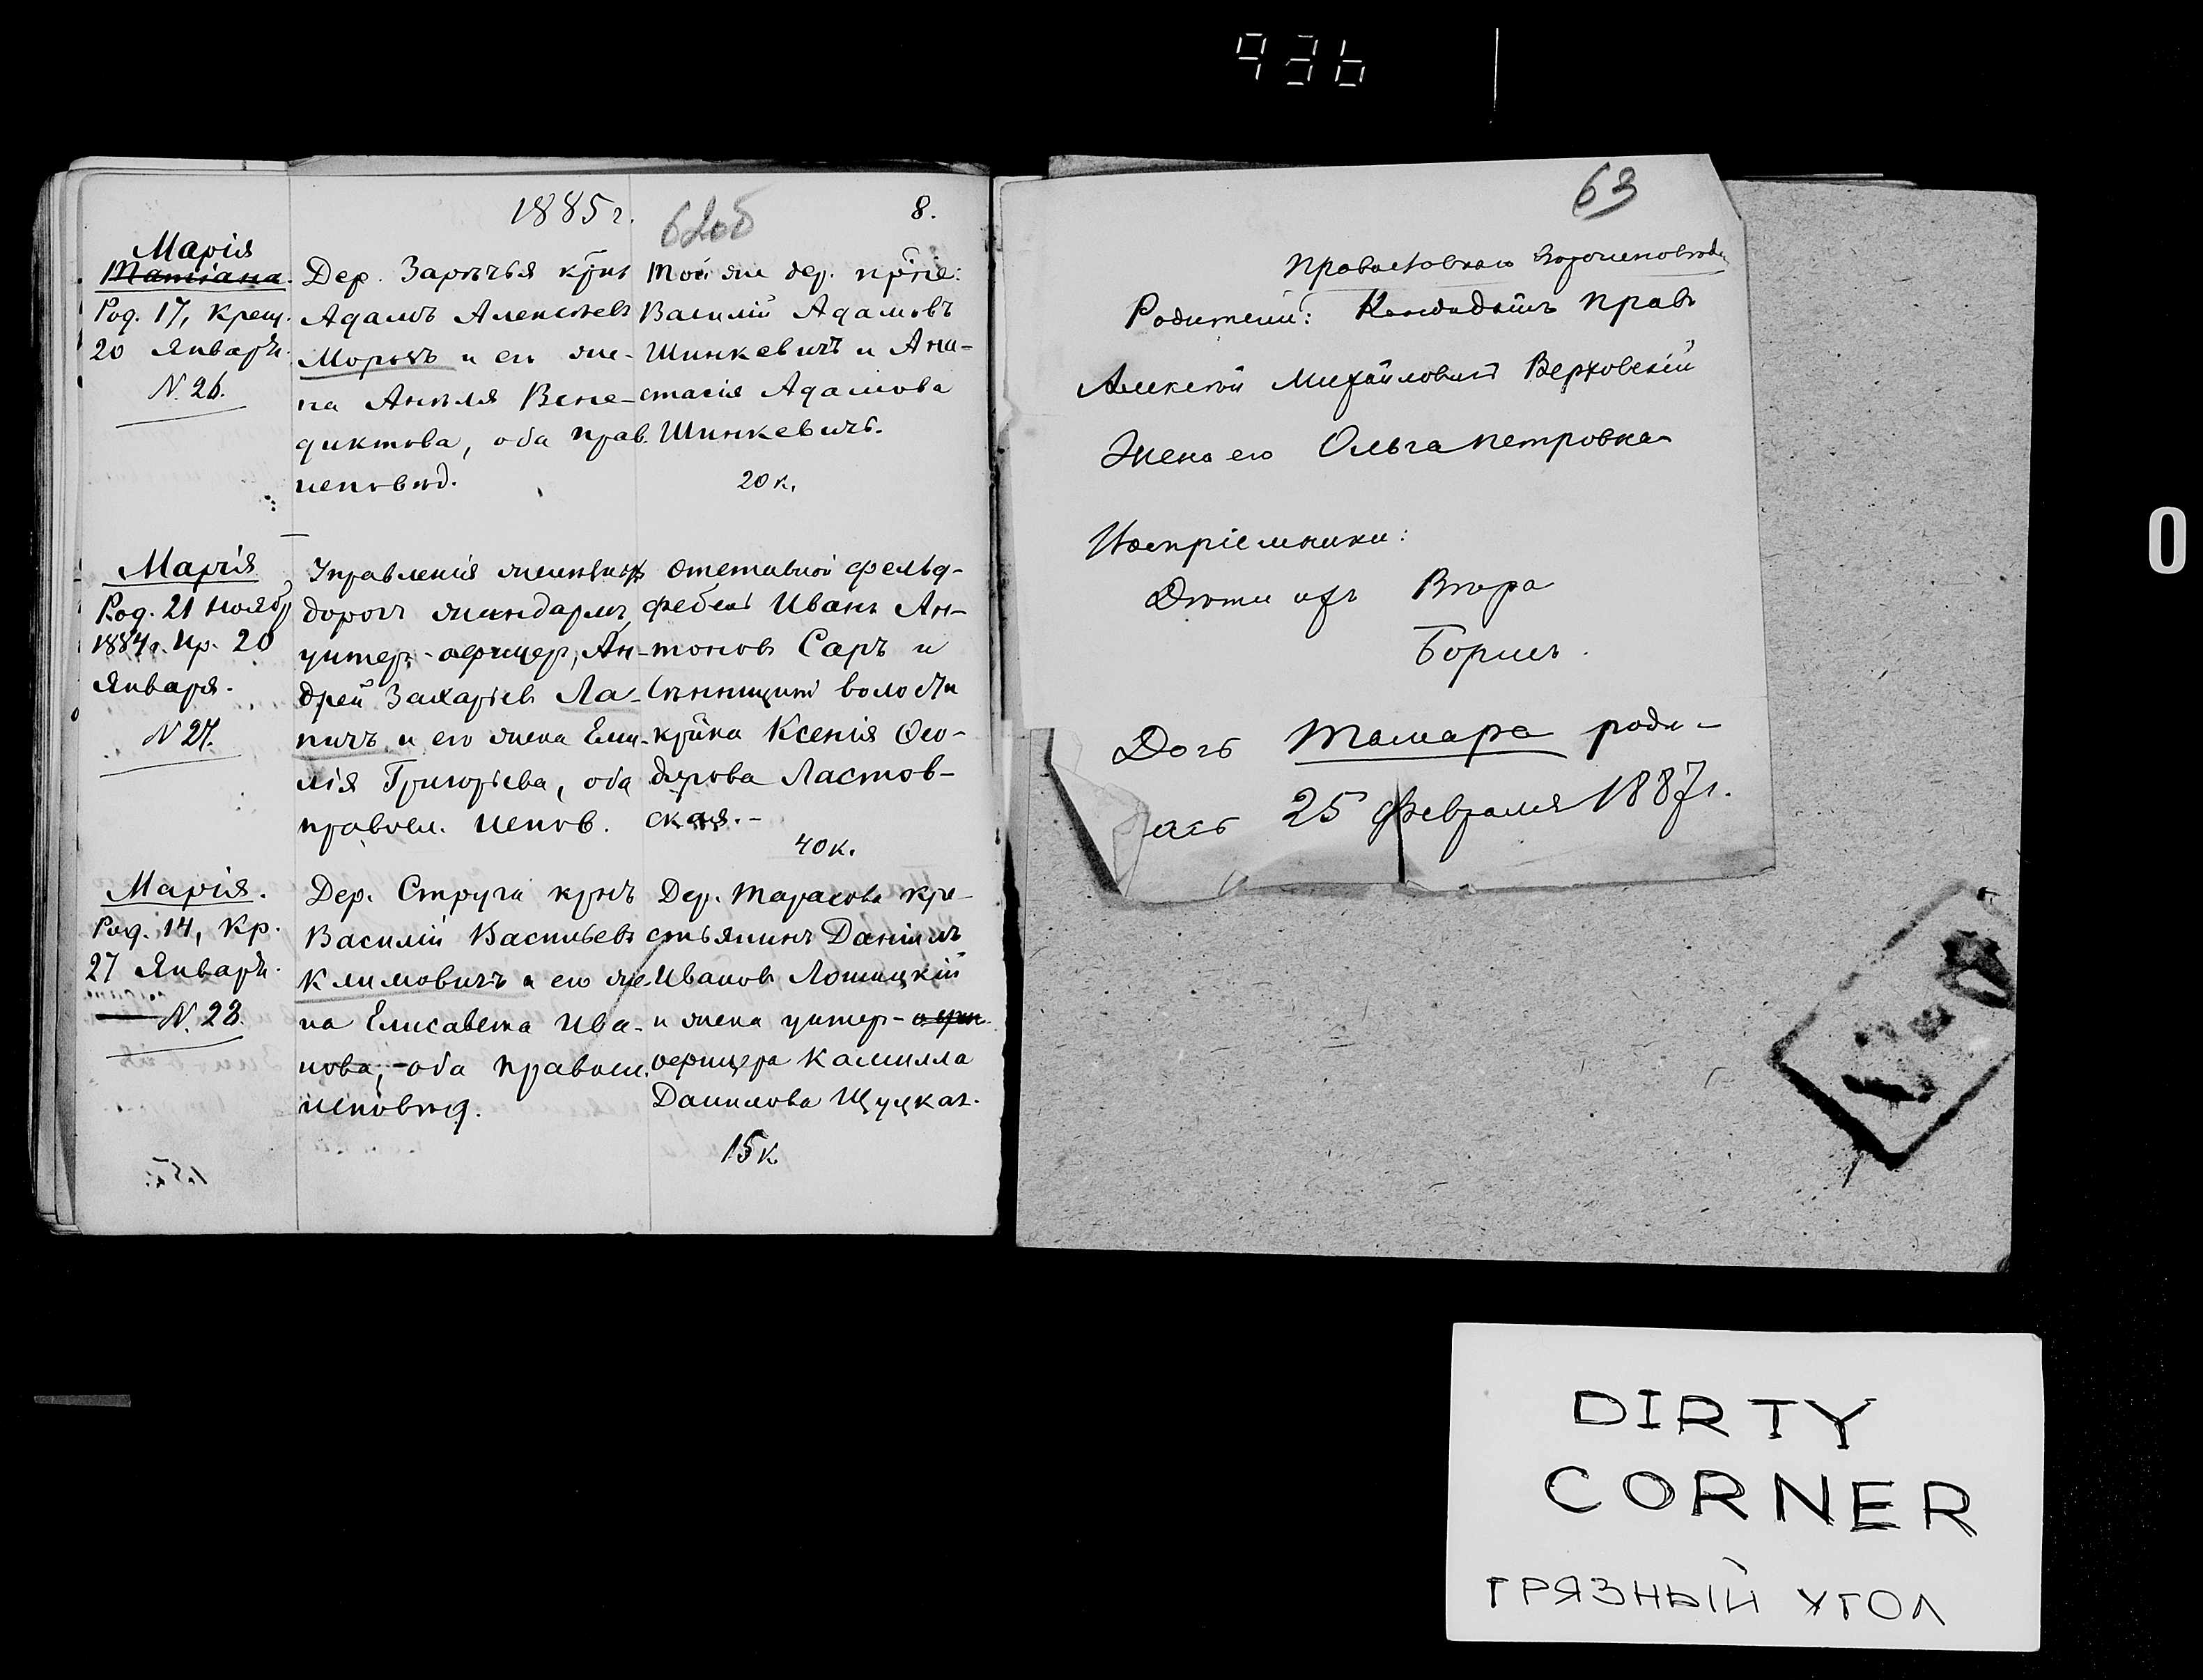 936
1885 г.
62об
8.
Марія
Татіана.
Род. 17, Крещ.
20 Января.
N. 26.
Дер. Зарѣчья кр҃нъ
Адамъ Алексѣевъ
Морозъ и его же-
на Анѣля Вене-
диктова, оба прав.
исповѣд.
Той же дер. кр҃не:
Василій Адамовъ
Шинкевичъ и Ана-
стасія Адамова
Шинкевичъ.
20 к.
Марія
Род. 21 Ноябр
1884 г. Кр. 20
Января.
N 27.
Управленія
дорогъ жандармъ,
унтер-офицер, Ан-
дрей Захаріев Ла-
пичъ и его жена Еми-
лія Григоріева, оба
правосл. испов.
Отставной фельд-
фебель Иванъ Ан-
тоновъ Саръ и
волости
кр҃нка Ксенія Ѳео-
дорова Ластов-
ская.-
40 к.
Марія.
Род. 14, Кр.
27 Января.
N. 28.
Дер. Струги крнъ
Василій Васильевъ
Климовичъ и его же-
на Елисавета Ива-
нова, оба правосл.
исповѣд.
Дер. Тарасова кре-
стьянинъ Даніилъ
Ивановъ Лошицкій
и жена унтер-
офицера Камилла
Данилова Щуцкая.
15 к
63
Православнаго
Родители: Кандидатъ правъ
Алексѣй Михайловичъ Верховскій
Жена его Ольга Петровна
Воспріемники:
Дѣти ихъ Вѣра
Борисъ.
Дочь Тамара роди-
лась 25 Февраля 1887 г.
0
DIRTY
CORNER
ГРЯЗНЫЙ УГОЛ